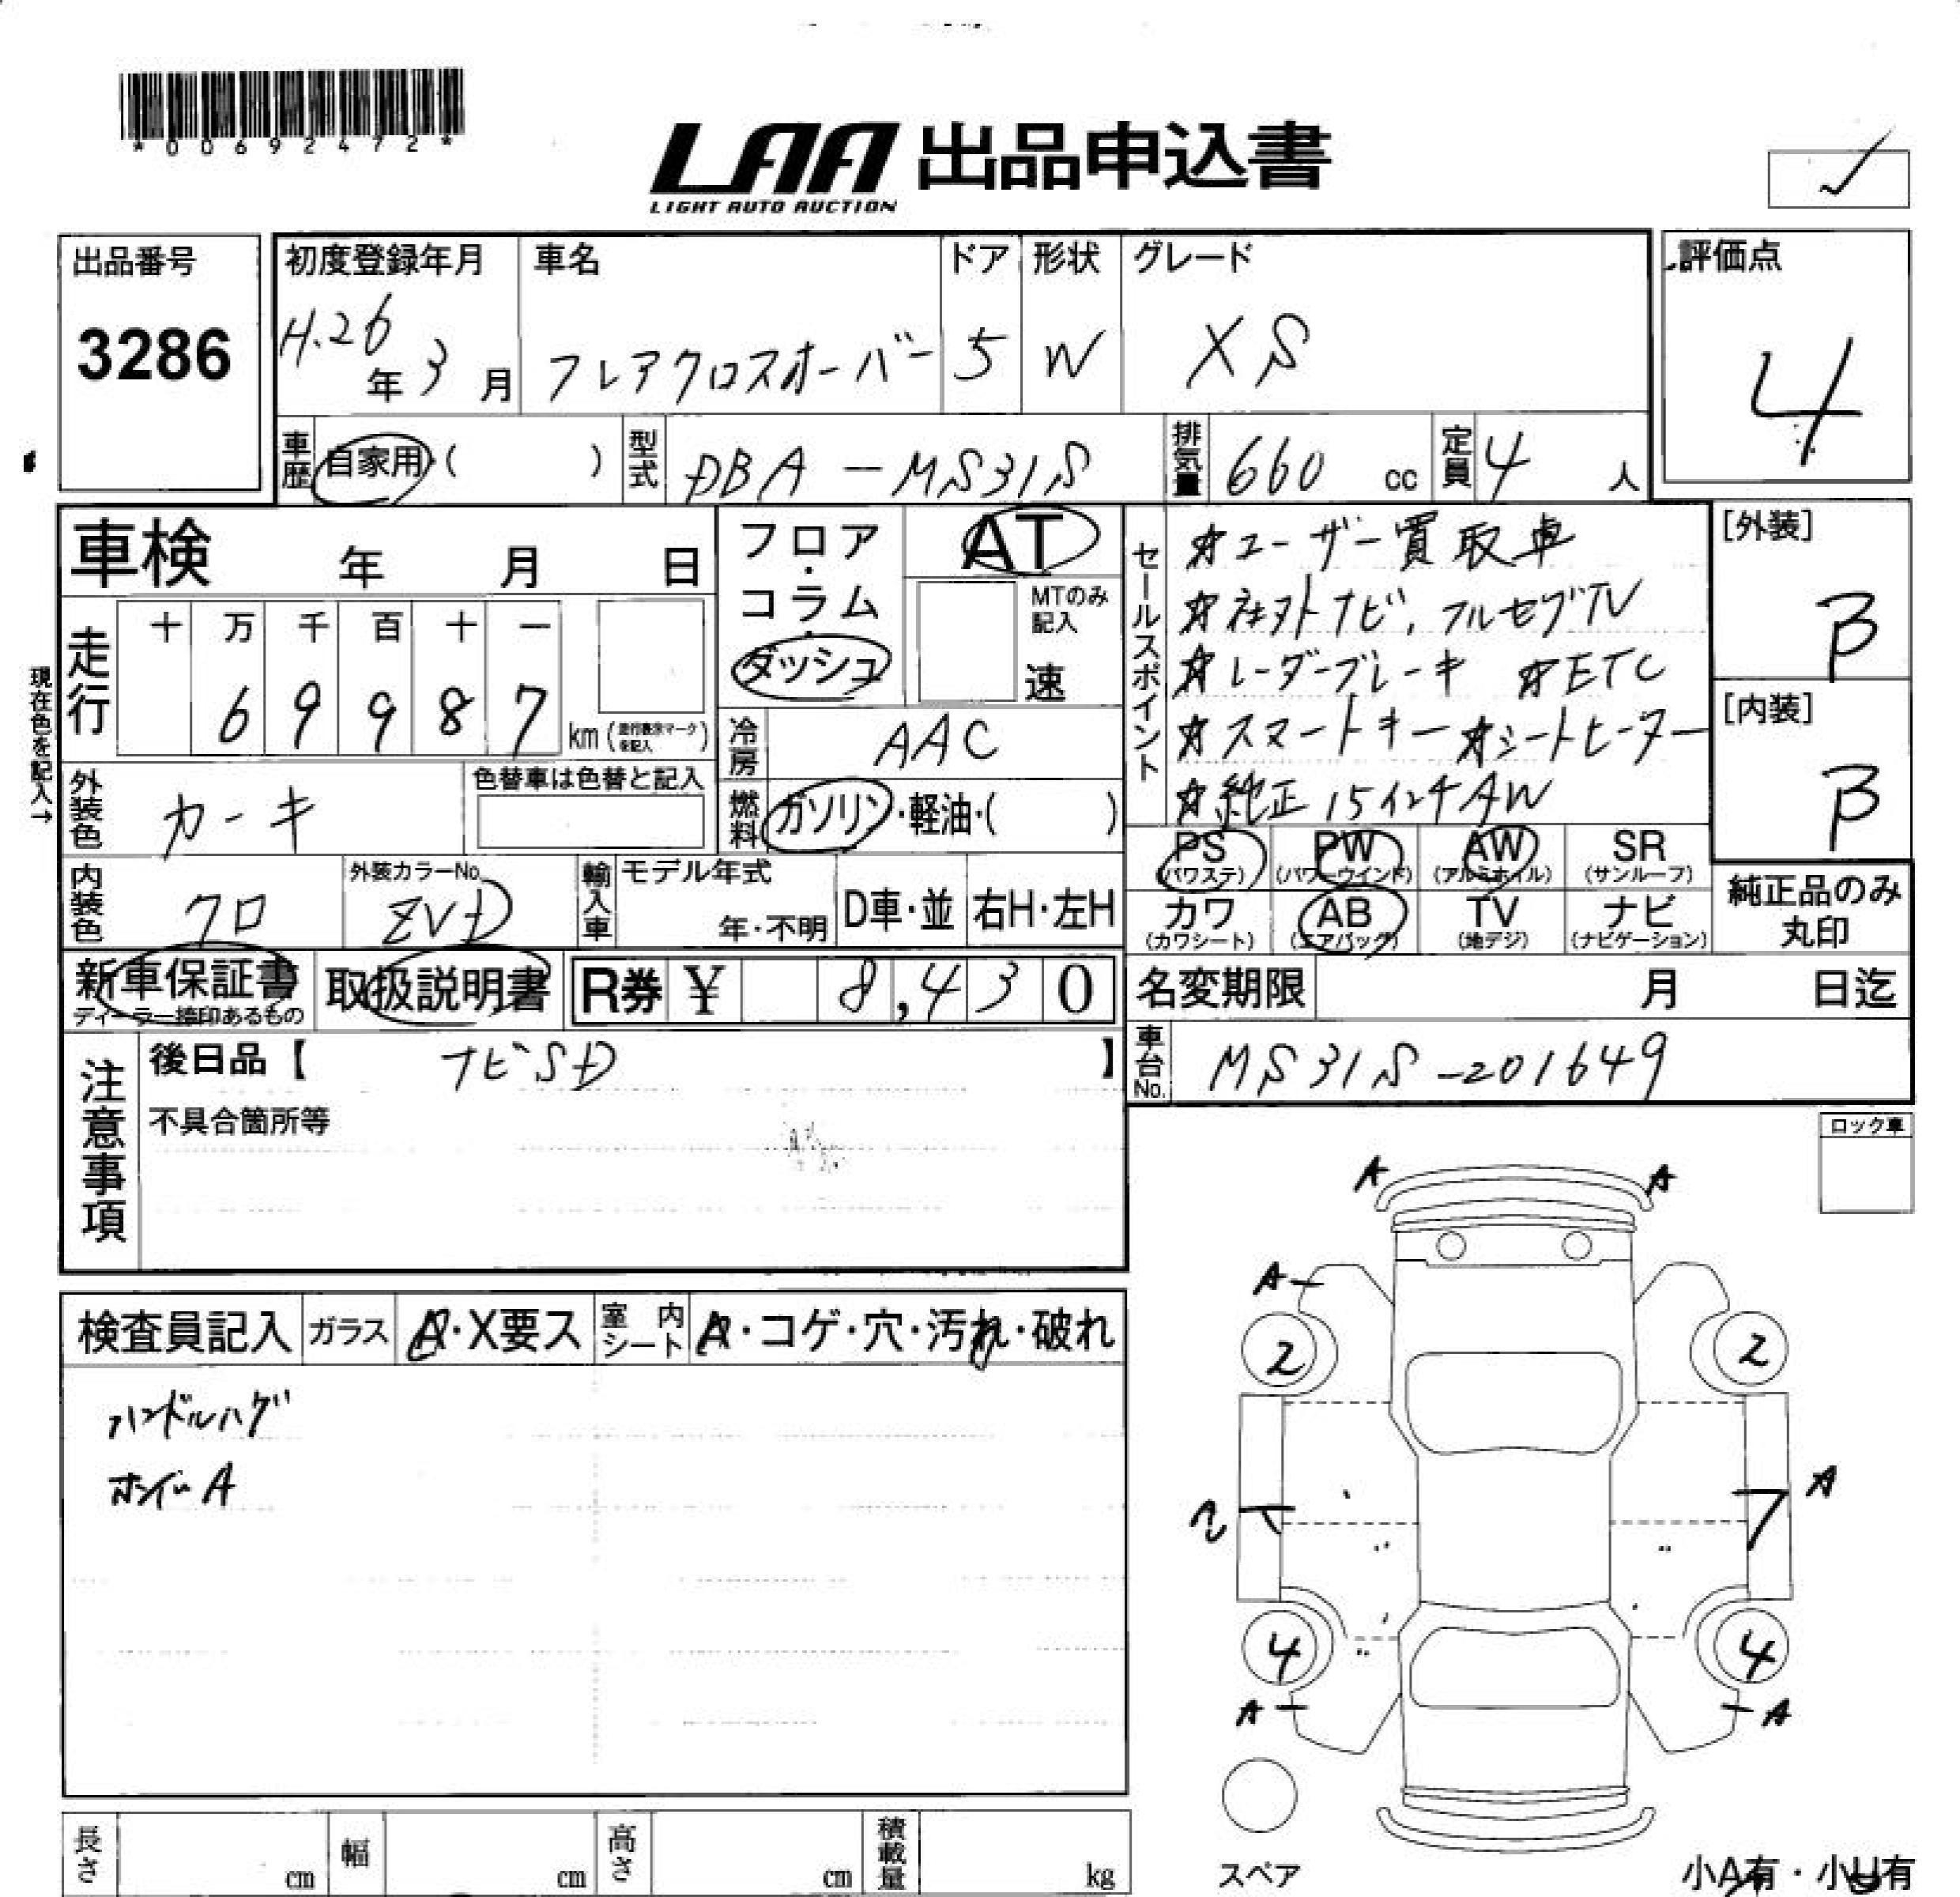 *00692472*
LAA 出品申込書
LIGHT AUTO AUCTION
出品番号
3286
初度登録年月
H.26年3月
車名
フレアクロスオーバー
ドア
5
形状
W
グレード
XS
評価点
4
車歴 自家用・( )
型式 DBA-MS31S
排気量 660 cc
定員 4 人
車検 年 月 日
フロア・コラム・ダッシュ
AT
MTのみ記入
速
走行
十 万 千 百 十 一
6 9 9 8 7 km (走行表示マークを記入)
現在色を記入→
冷房 AAC
外装色 カーキ
色替車は色替と記入
燃料 ガソリン・軽油・( )
内装色 クロ
外装カラーNo. ZVD
輸入車
モデル年式
年・不明
D車・並
右H・左H
セールスポイント
☆ユーザー買取車
☆社外ナビ、フルセグTV
☆レーダーブレーキ ☆ETC
☆スマートキー ☆シートヒーター
☆純正15インチAW
[外装]
B
[内装]
B
PS (パワステ)
PW (パワーウインド)
AW (アルミホイル)
SR (サンルーフ)
カワ (カワシート)
AB (エアバッグ)
TV (地デジ)
ナビ (ナビゲーション)
純正品のみ丸印
新車保証書
ディーラー捺印あるもの
取扱説明書
R券 ¥ 8,430
名変期限 月 日迄
車台No. MS31S-201649
注意事項
後日品【 ナビSD 】
不具合箇所等
ロック車
検査員記入
ガラス A・X要ス
室内シート A・コゲ・穴・汚れ・破れ
ハンドルハゲ
ホイルA
A A
A
2 2
A
4 4
A A
スペア
長さ cm
幅 cm
高さ cm
積載量 kg
小A有・小U有